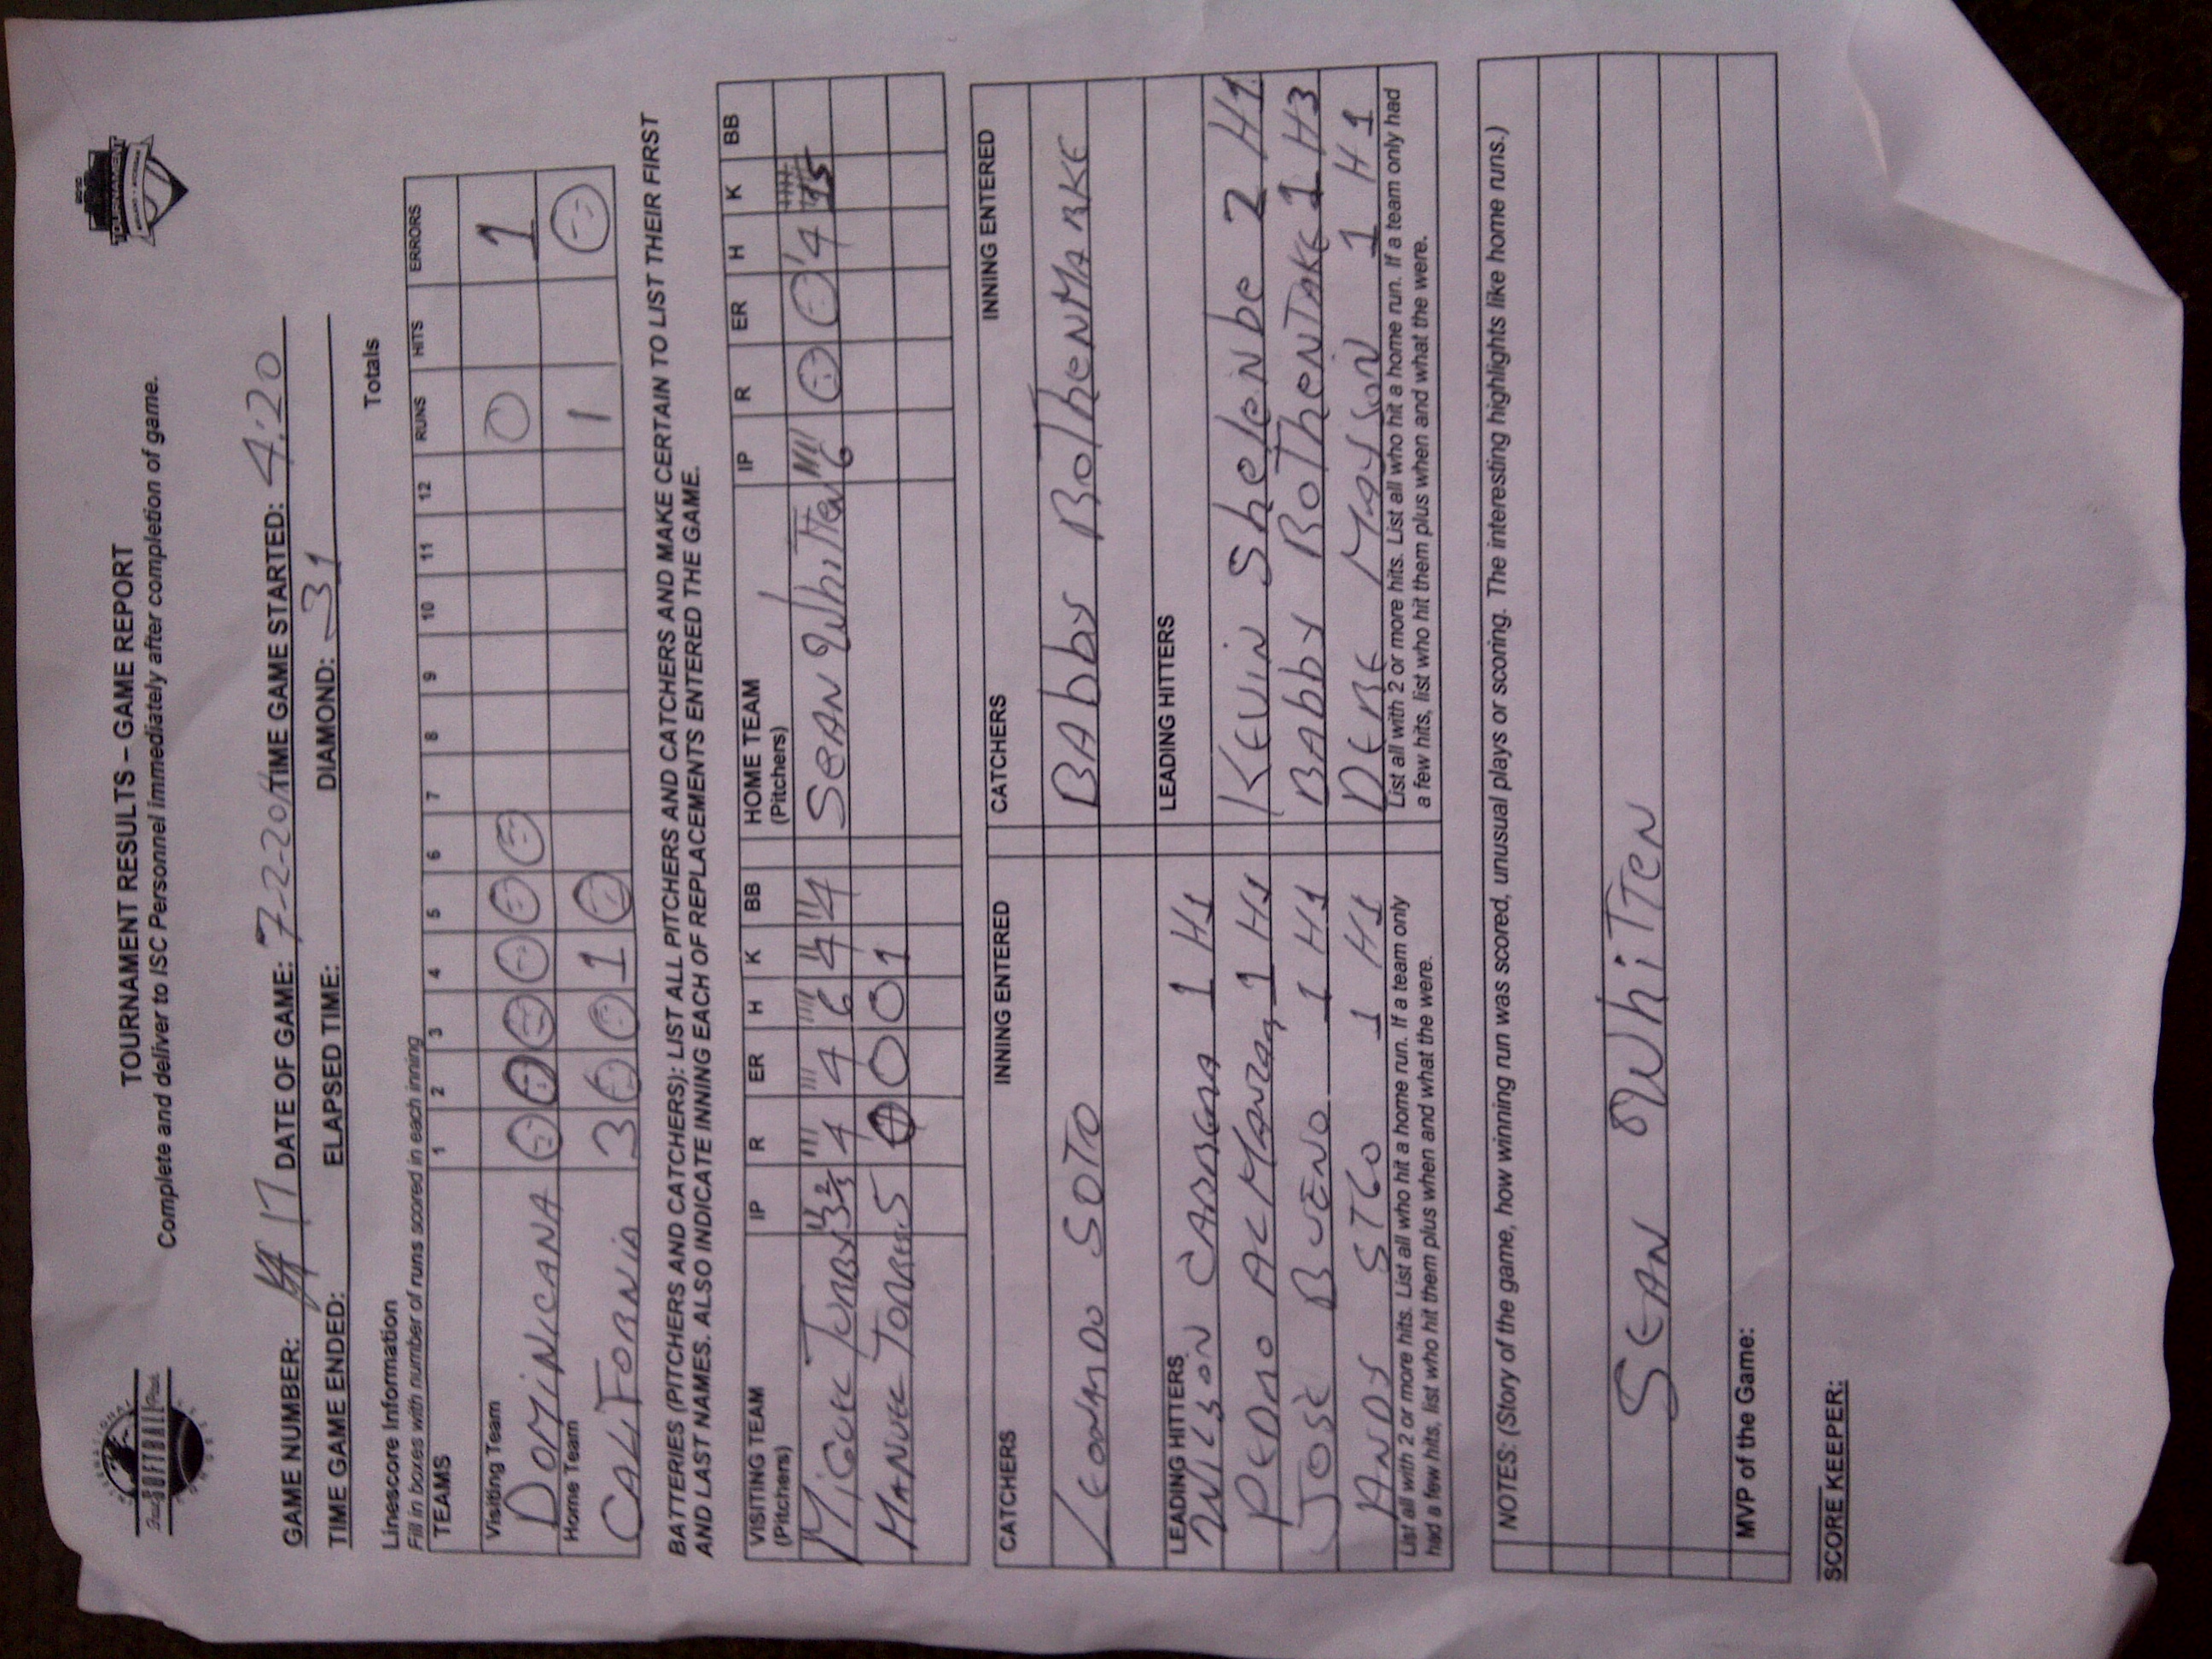 TOURNAMENT RESULTS – GAME REPORT
Complete and deliver to ISC Personnel immediately after completion of game.
GAME NUMBER: # 17 DATE OF GAME: 7-2-2011 TIME GAME STARTED: 4:20
TIME GAME ENDED: ELAPSED TIME: DIAMOND: 31
Linescore Information Totals
Fill in boxes with number of runs scored in each inning
TEAMS 1 2 3 4 5 6 7 8 9 10 11 12 RUNS HITS ERRORS
Visiting Team
DOMINICANA 0 0 0 0 0 0 0 1
Home Team
CALIFORNIA 3 0 0 1 0 1 0
BATTERIES (PITCHERS AND CATCHERS): LIST ALL PITCHERS AND CATCHERS AND MAKE CERTAIN TO LIST THEIR FIRST
AND LAST NAMES. ALSO INDICATE INNING EACH OF REPLACEMENTS ENTERED THE GAME.
VISITING TEAM IP R ER H K BB HOME TEAM IP R ER H K BB
(Pitchers) (Pitchers)
MIGUEL 3 2/3 4 4 6 4 4 SEAN WhiTTEN 6 0 0 4 15
MANUEL 5 0 0 0 1
CATCHERS INNING ENTERED CATCHERS INNING ENTERED
LEONARDO SOTO BAbby
LEADING HITTERS LEADING HITTERS
WILSON 1 H1 KEVIN 2 H1
PEDRO 1 H1 BAbby 1 H3
JOSE BUENO 1 H1 1 H1
ANDY 1 H1
List all with 2 or more hits. List all who hit a home run. If a team only List all with 2 or more hits. List all who hit a home run. If a team only had
had a few hits, list who hit them plus when and what the were. a few hits, list who hit them plus when and what the were.
NOTES: (Story of the game, how winning run was scored, unusual plays or scoring. The interesting highlights like home runs.)
SEAN WhiTTEN
MVP of the Game:
SCORE KEEPER: